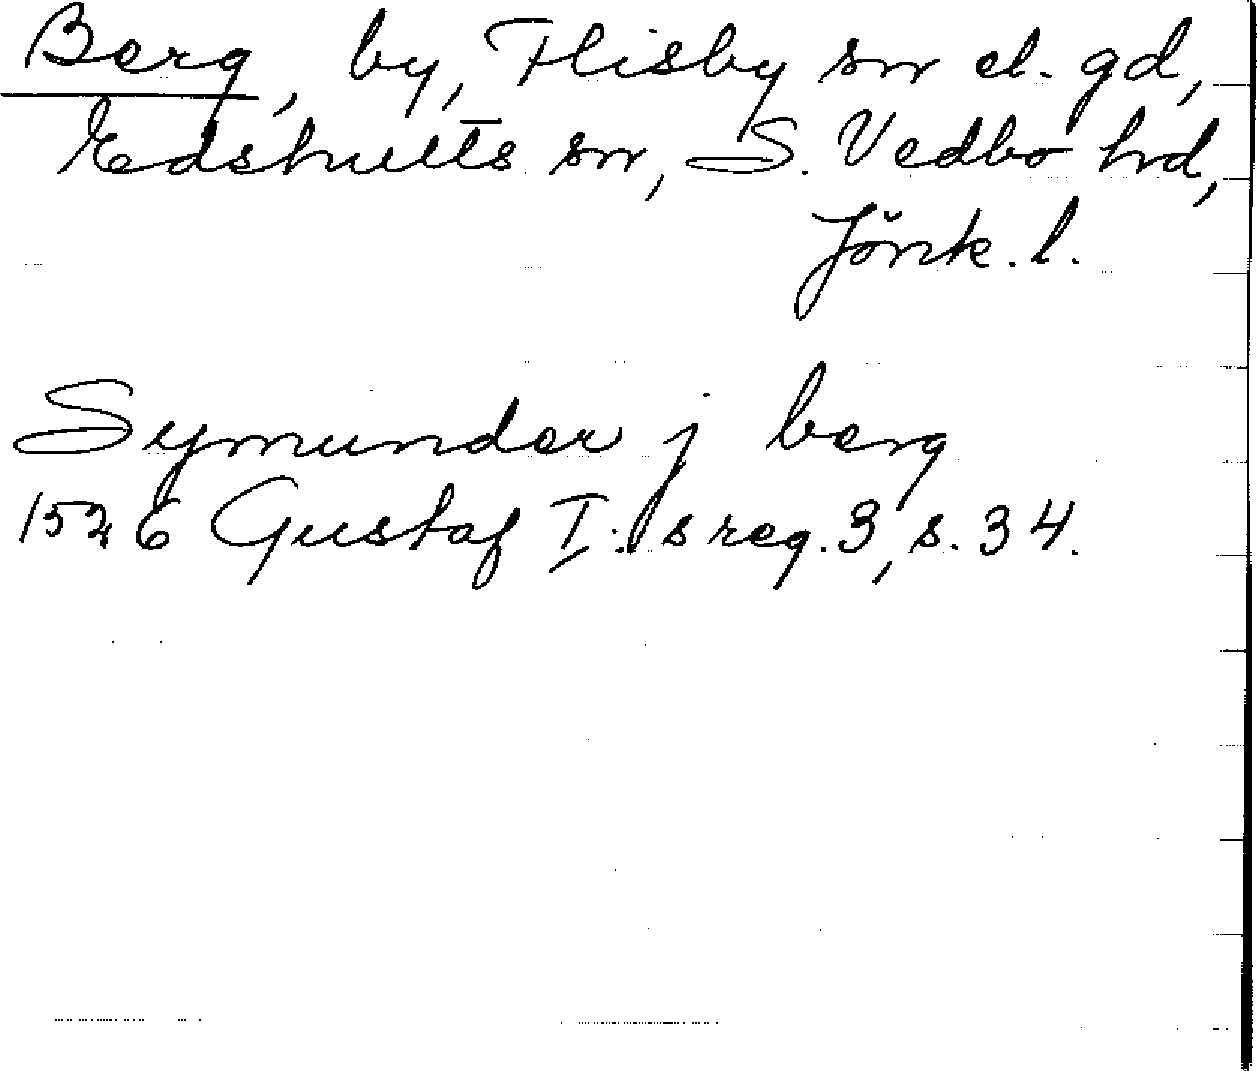 Berg, by, Flisby sn el. gd,
Edshults sn, S. Vedbo hd,
Jönk. l.
Symunder j berg
1526 Gustaf I:s reg. 3, s. 34.